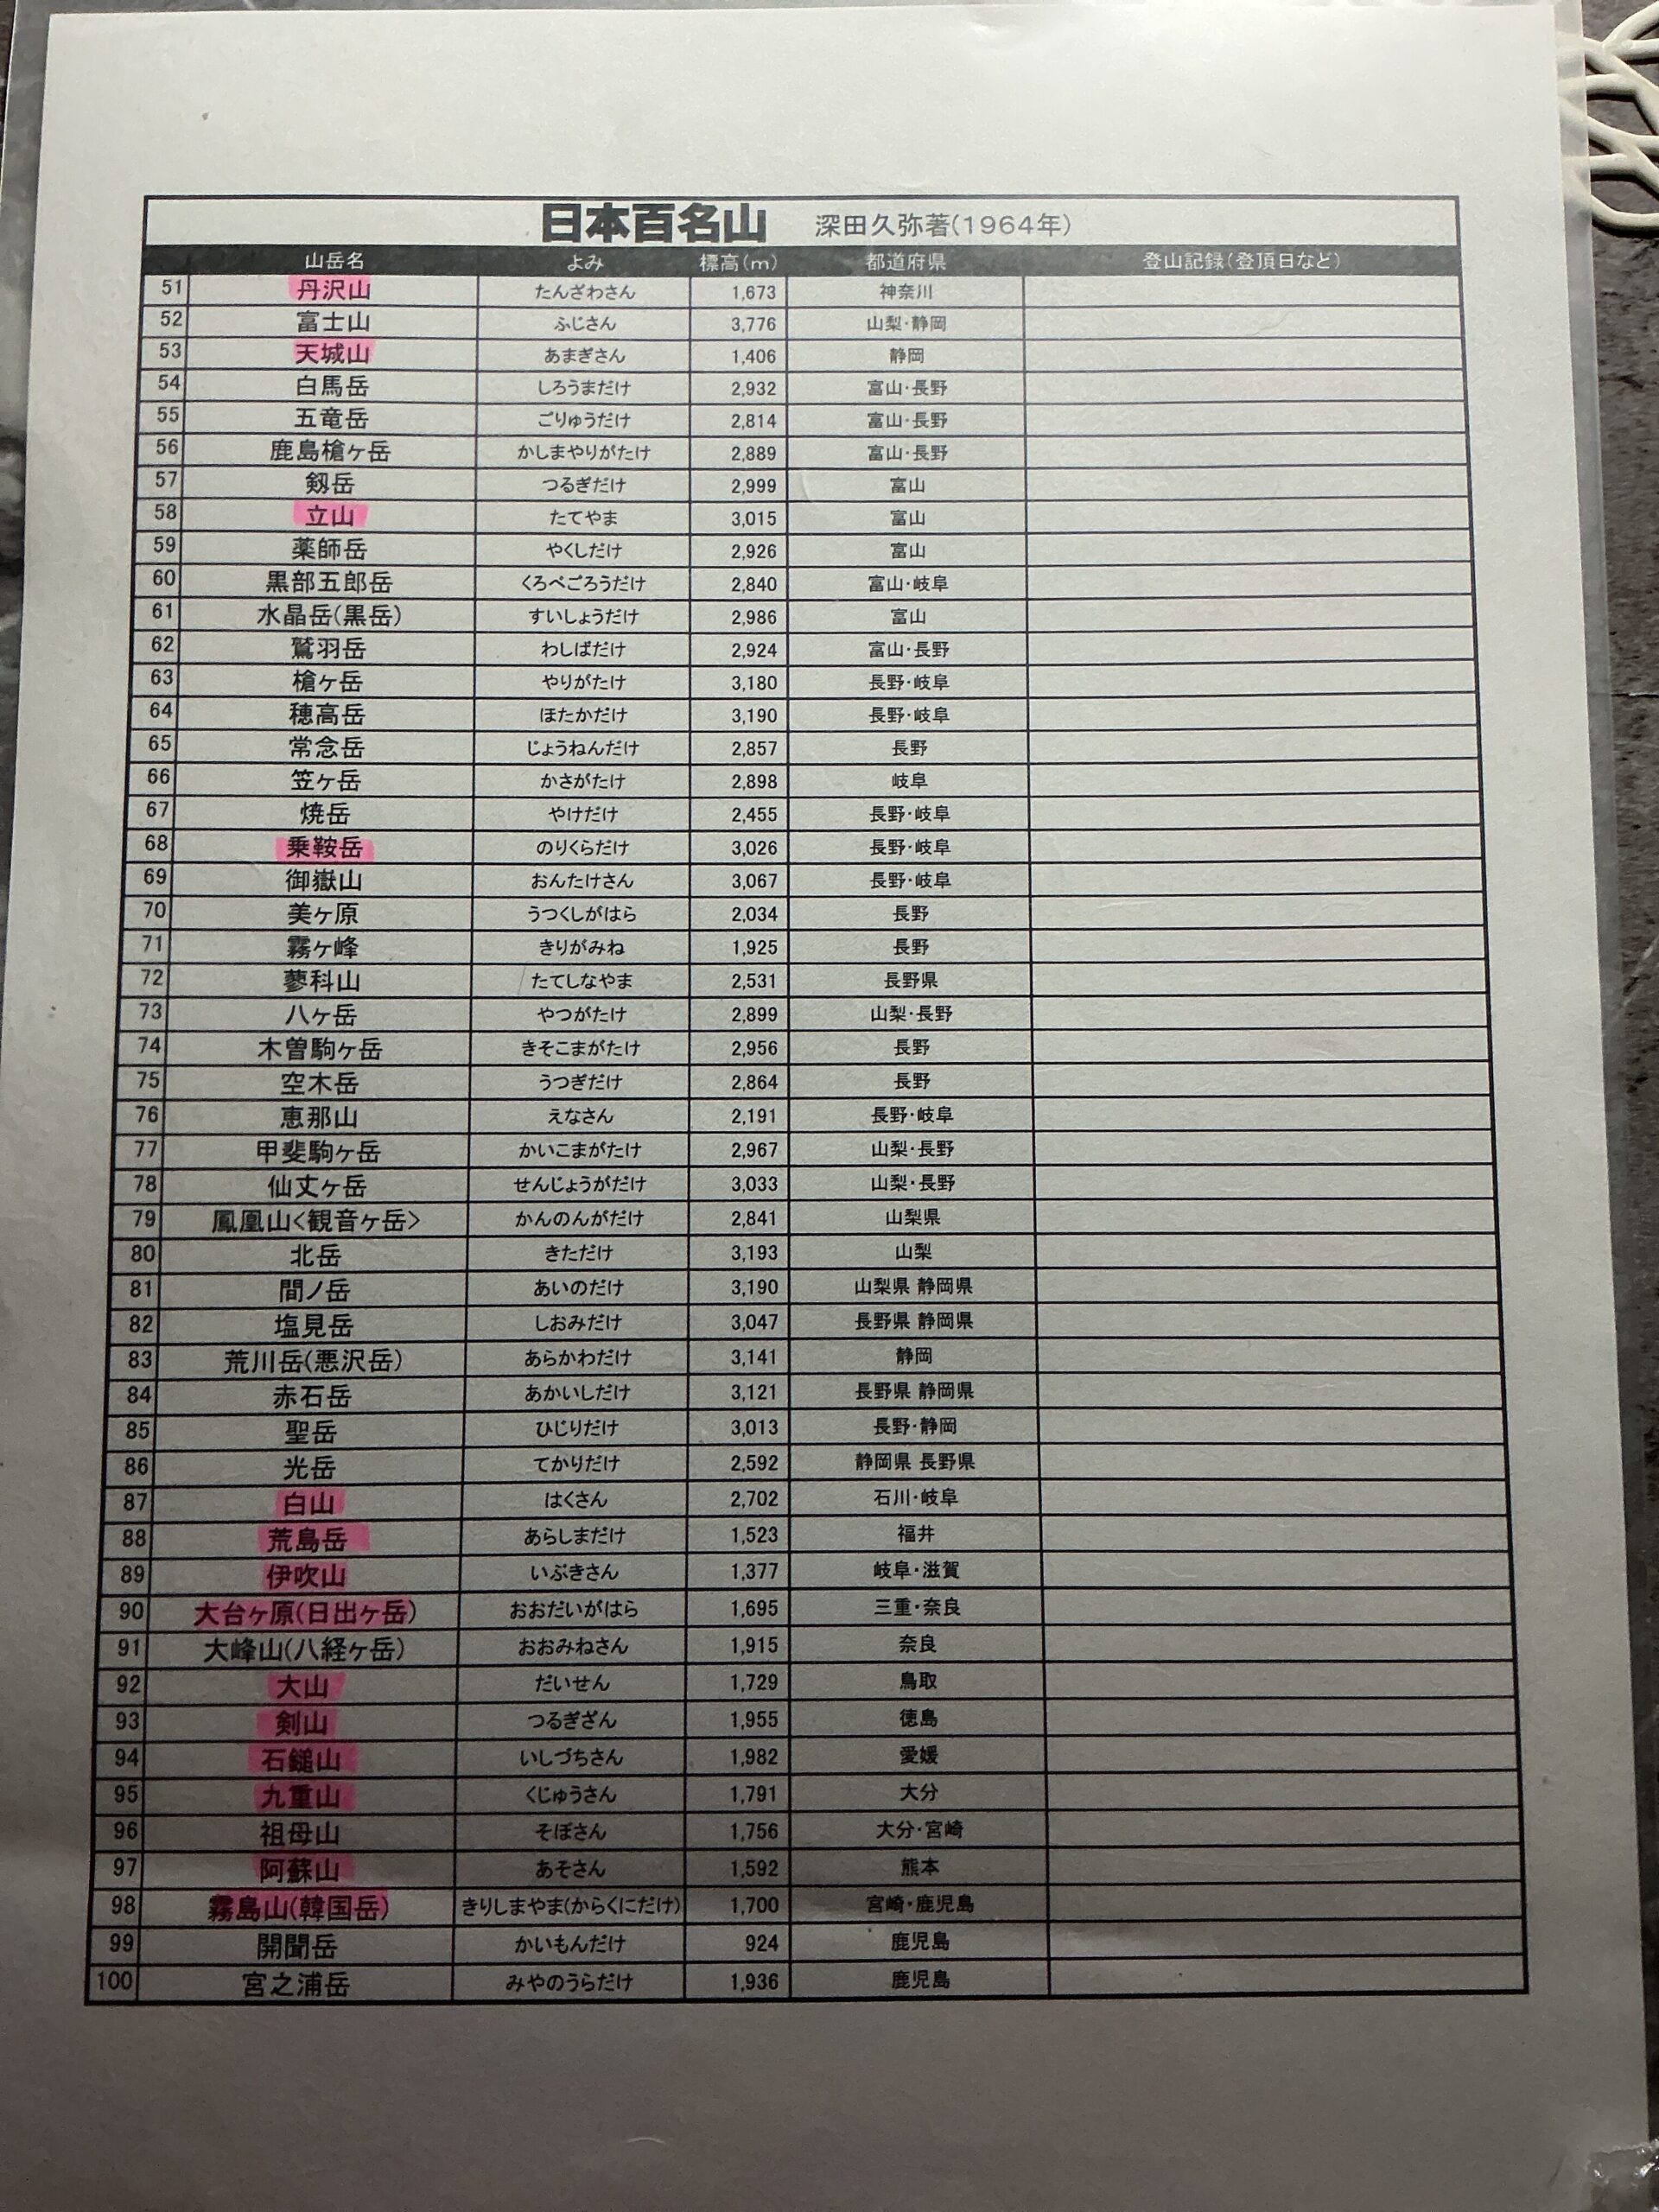 日本百名山 深田久弥著(1964年)
山岳名 よみ 標高(m) 都道府県 登山記録(登頂日など)
51 丹沢山 たんざわさん 1,673 神奈川
52 富士山 ふじさん 3,776 山梨・静岡
53 天城山 あまぎさん 1,406 静岡
54 白馬岳 しろうまだけ 2,932 富山・長野
55 五竜岳 ごりゅうだけ 2,814 富山・長野
56 鹿島槍ヶ岳 かしまやりがたけ 2,889 富山・長野
57 剱岳 つるぎだけ 2,999 富山
58 立山 たてやま 3,015 富山
59 薬師岳 やくしだけ 2,926 富山
60 黒部五郎岳 くろべごろうだけ 2,840 富山・岐阜
61 水晶岳(黒岳) すいしょうだけ 2,986 富山
62 鷲羽岳 わしばだけ 2,924 富山・長野
63 槍ヶ岳 やりがたけ 3,180 長野・岐阜
64 穂高岳 ほたかだけ 3,190 長野・岐阜
65 常念岳 じょうねんだけ 2,857 長野
66 笠ヶ岳 かさがたけ 2,898 岐阜
67 焼岳 やけだけ 2,455 長野・岐阜
68 乗鞍岳 のりくらだけ 3,026 長野・岐阜
69 御嶽山 おんたけさん 3,067 長野・岐阜
70 美ヶ原 うつくしがはら 2,034 長野
71 霧ヶ峰 きりがみね 1,925 長野
72 蓼科山 たてしなやま 2,531 長野県
73 八ヶ岳 やつがたけ 2,899 山梨・長野
74 木曽駒ヶ岳 きそこまがたけ 2,956 長野
75 空木岳 うつぎだけ 2,864 長野
76 恵那山 えなさん 2,191 長野・岐阜
77 甲斐駒ヶ岳 かいこまがたけ 2,967 山梨・長野
78 仙丈ヶ岳 せんじょうがだけ 3,033 山梨・長野
79 鳳凰山<観音ヶ岳> かんのんがだけ 2,841 山梨県
80 北岳 きただけ 3,193 山梨
81 間ノ岳 あいのだけ 3,190 山梨県 静岡県
82 塩見岳 しおみだけ 3,047 長野県 静岡県
83 荒川岳(悪沢岳) あらかわだけ 3,141 静岡
84 赤石岳 あかいしだけ 3,121 長野県 静岡県
85 聖岳 ひじりだけ 3,013 長野・静岡
86 光岳 てかりだけ 2,592 静岡県 長野県
87 白山 はくさん 2,702 石川・岐阜
88 荒島岳 あらしまだけ 1,523 福井
89 伊吹山 いぶきさん 1,377 岐阜・滋賀
90 大台ヶ原(日出ヶ岳) おおだいがはら 1,695 三重・奈良
91 大峰山(八経ヶ岳) おおみねさん 1,915 奈良
92 大山 だいせん 1,729 鳥取
93 剣山 つるぎざん 1,955 徳島
94 石鎚山 いしづちさん 1,982 愛媛
95 九重山 くじゅうさん 1,791 大分
96 祖母山 そぼさん 1,756 大分・宮崎
97 阿蘇山 あそさん 1,592 熊本
98 霧島山(韓国岳) きりしまやま(からくにだけ) 1,700 宮崎・鹿児島
99 開聞岳 かいもんだけ 924 鹿児島
100 宮之浦岳 みやのうらだけ 1,936 鹿児島